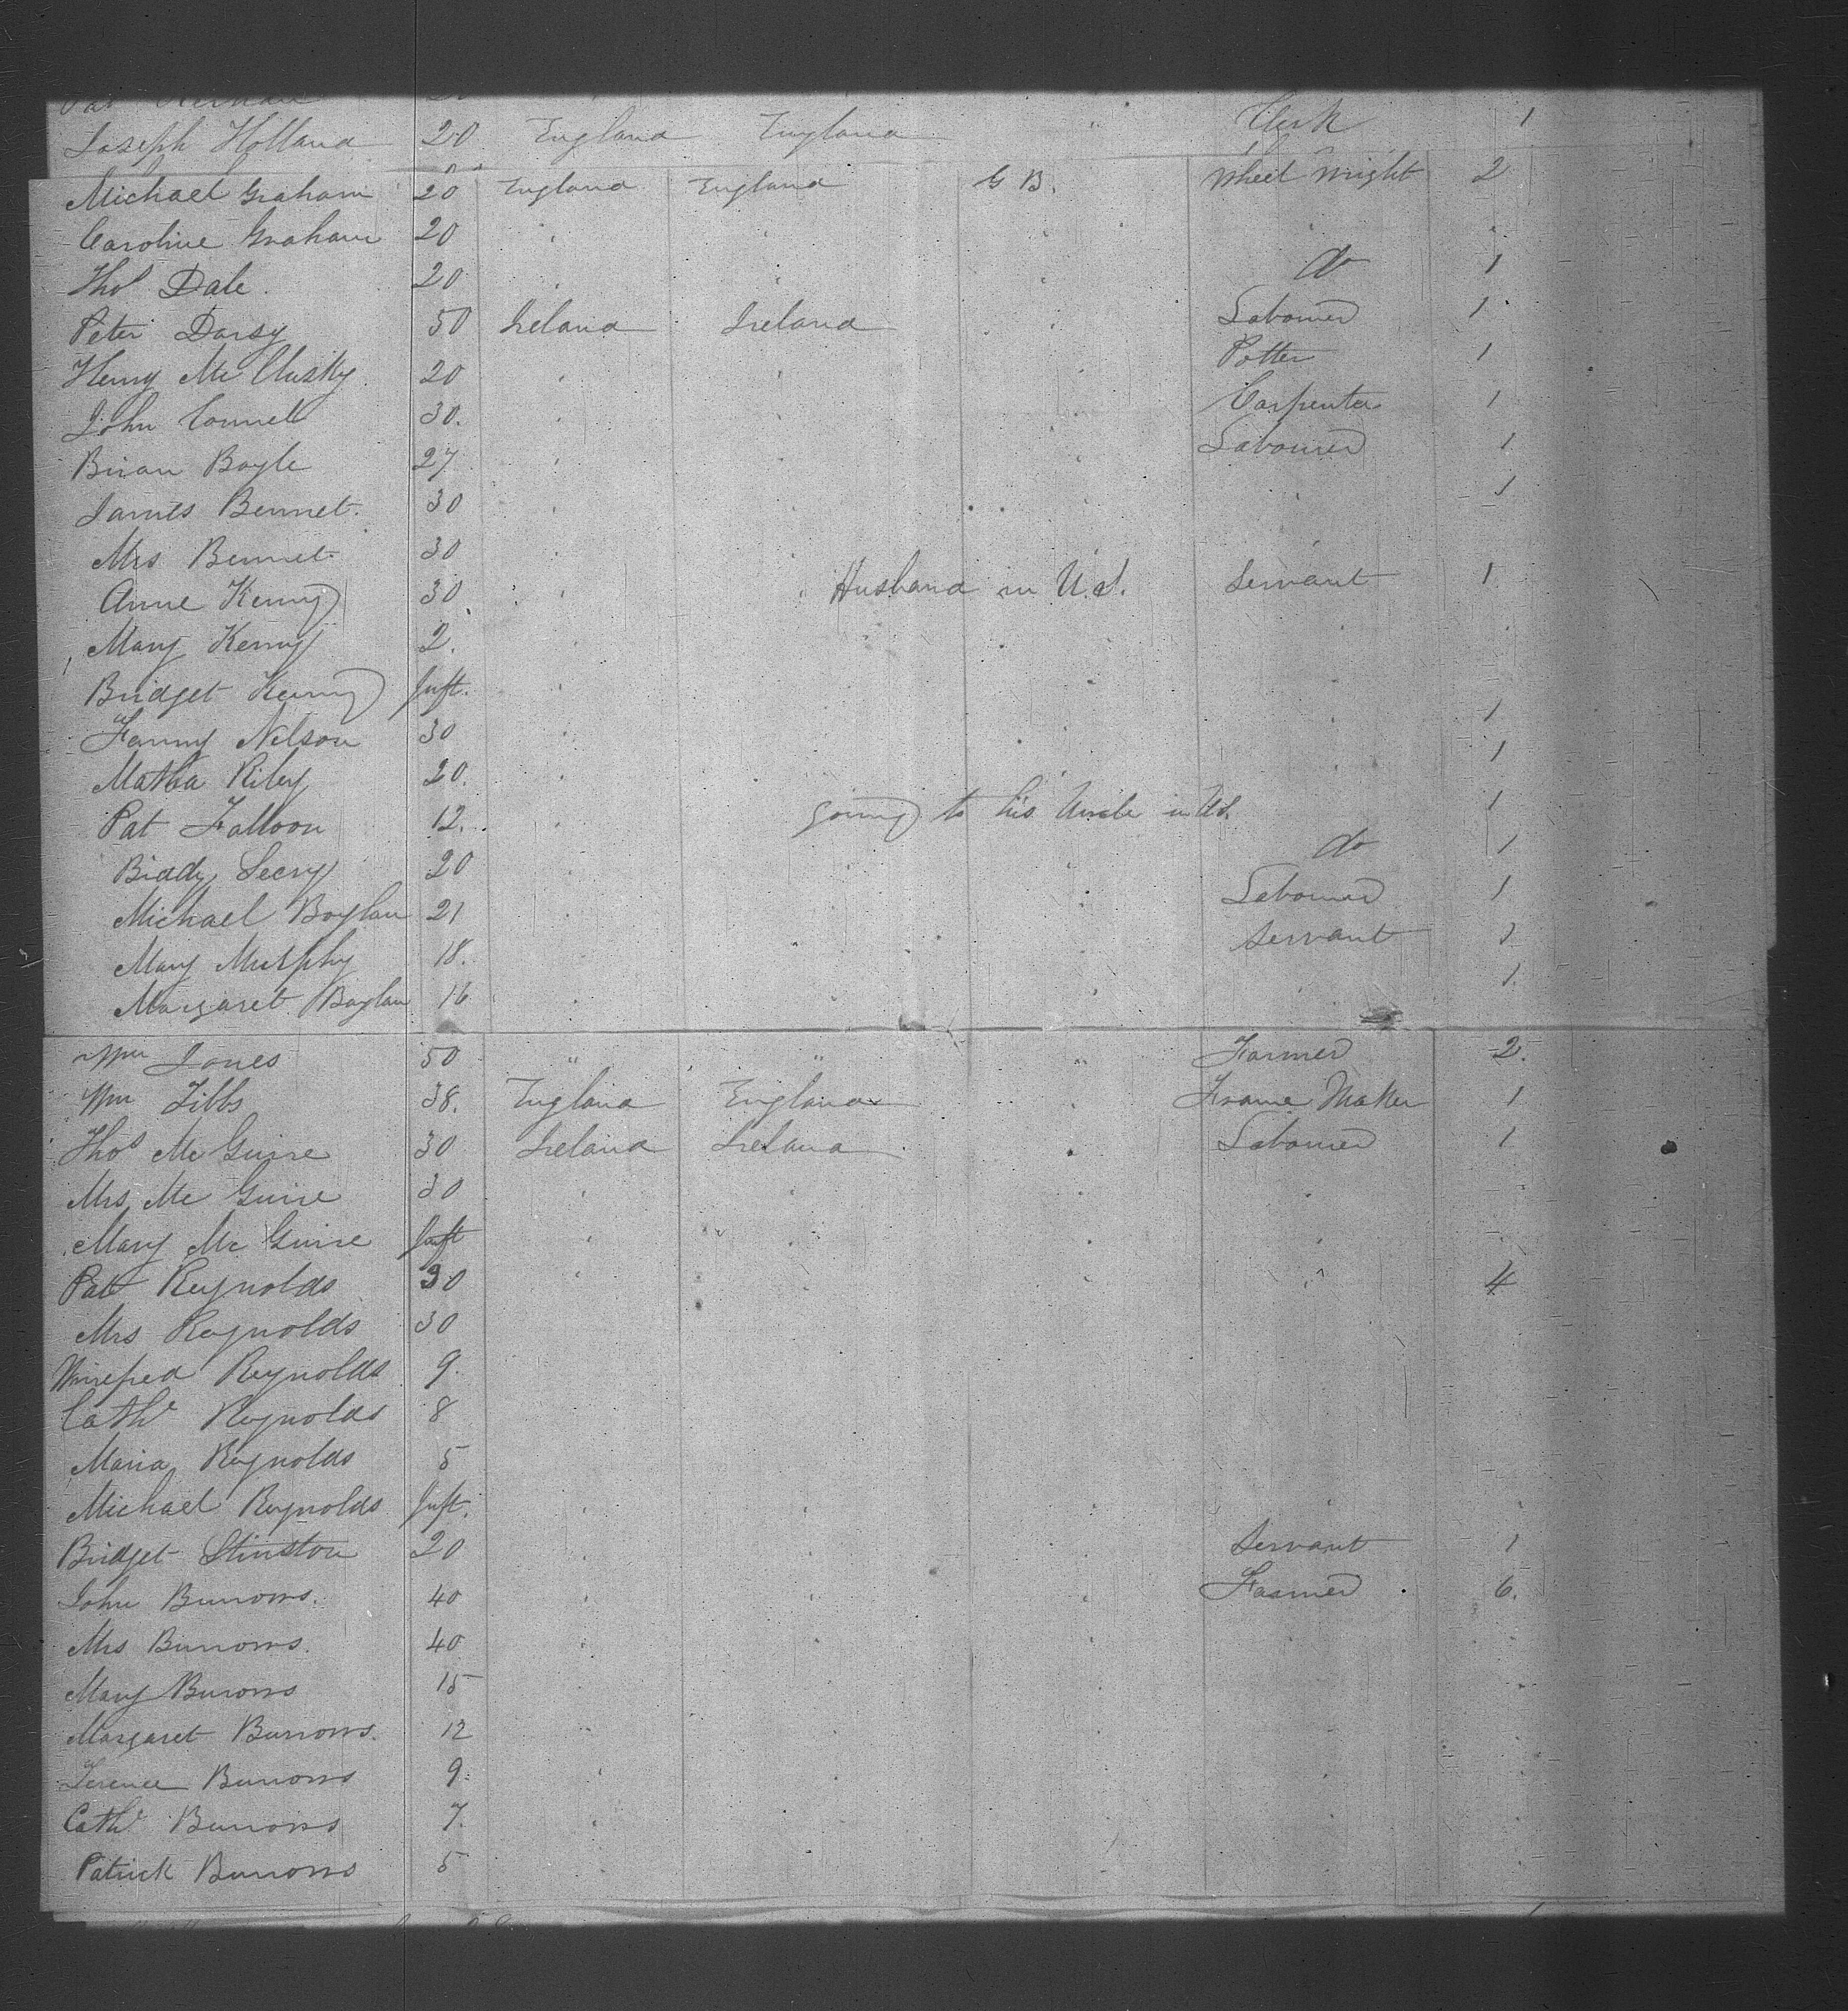 Joseph Holland 20 England England " Clerk 1
Michael Graham 20 England England G B. Wheel Wright 2
Caroline Graham 20 " " " "
Thos Dale. 20 " " " do 1
Peter Darsy 50 Ireland Ireland " Labourer 1
Henry Mc Clusky. 20 " " " Potter 1
John Connell 30. " " " Carpenter 1
Brian Boyle 27 " " " Labourer 1
James Bennet. 30 " " " " 1
Mrs Bennet. 30 " " " "
Anne Kenny 30 " " Husband in U.S. Servant 1
Mary Kenny 2.
Bridget Kenny Inft.
Fanny Nelson 30 " " " " 1
Matha Riley 20. " " " " 1
Pat Falloon 12. " going to his Uncle in US. 1
Biddy Lecry 20 " " " do 1
Michael Boylan 21 " " " Labourer 1
Mary Murphy 18. " " " Servant 1
Margaret Boylan 16 " " " " 1.
Wm Jones 50 " " Farmer 2.
Wm Tibbs 38. England England " Frame Maker 1
Thos Mc Guire 30 Ireland Ireland " Labourer 1
Mrs Mc Guire 30 " " " "
Mary Mc Guire Inft " " " "
Pat Reynolds 30 " " " " 4
Mrs Reynolds 30
Winefred Reynolds 9.
Cathe Reynolds 8
Maria Reynolds 5
Michael Reynolds Inft. " " " "
Bridget Stinston 20 " " " Servant 1
John Burrows. 40 " " " Farmer 6.
Mrs Burrows. 40 " " "
Mary Burrows 15
Margaret Burrows. 12
Terence Burrows 9.
Cathe Burrows 7.
Patrick Burrows 5